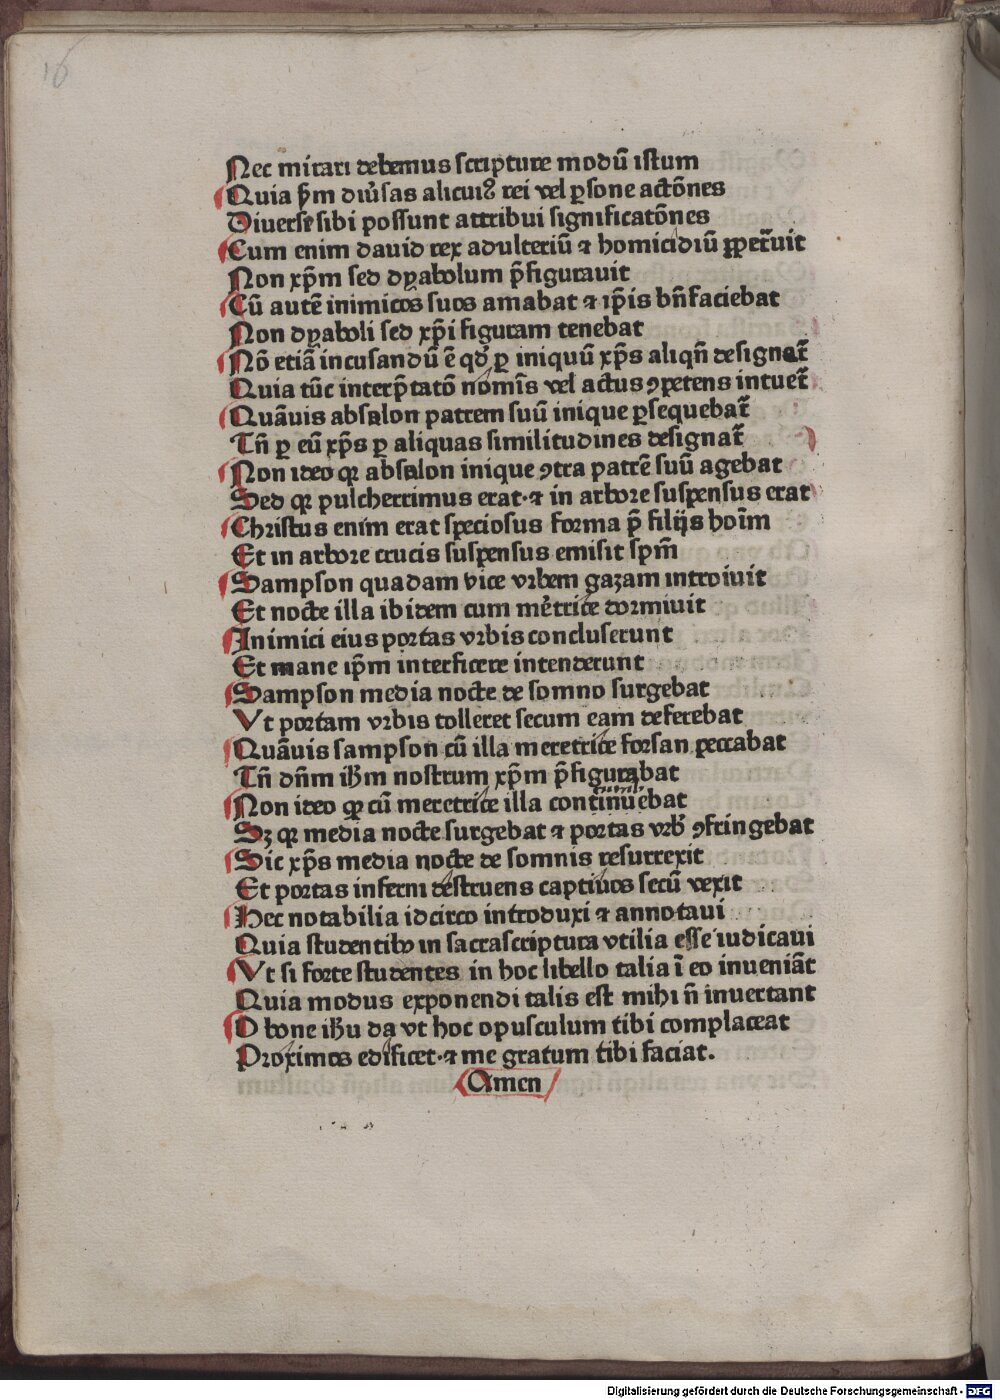 16
Nec mirari debemus scripture modū istum
Quia ẜm diu̾sas alicuiꝰ rei vel ꝑsone actōnes
Diuerse sibi possunt attribui significatōnes
Cum enim dauid rex adulteriū ⁊ homicidiū ꝑpet̄uit
Non xp̄m sed dyabolum p̄figurauit
Cū autē inimicos suos amabat ⁊ ip̄is bn̄faciebat
Non dyaboli sed xp̄i figuram tenebat
Nō etiā incusandū ē qd̓ ꝑ iniquū xp̄s aliqn̄ designat̄
Quia tūc interp̄tatō nomīs vel actus ꝯpetens intuet̄
Quāuis absalon patrem suū inique ꝑsequebat̄
Tn̄ ꝑ eū xp̄s ꝑ aliquas similitudines designat̄
Non ideo qꝛ absalon inique ꝯtra patrē suū agebat
Sed qꝛ pulcherrimus erat·⁊ in arbore suspensus erat
Christus enim erat speciosus forma p̄ filijs hoīm
Et in arbore crucis suspensus emisit spm̄
Sampson quadam vice vrbem gazam introiuit
Et nocte illa ibidem cum me̾trice dormiuit
Inimici eius portas vrbis concluserunt
Et mane ip̄m interficere intenderunt
Sampson media nocte de somno surgebat
Vt portam vrbis tolleret secum eam deferebat
Quāuis sampson cū illa meretrice forsan peccabat
Tn̄ dn̄m ih̄m nostrum xp̄m p̄figurabat
Non ideo qꝛ cū meretrice illa continuebat
Sꝫ qꝛ media nocte surgebat ⁊ portas vrb̓ ꝯfringebat
Sic xp̄s media nocte de somnis resurrexit
Et portas inferni destruens captiuos secū vexit
Hec notabilia idcirco introduxi ⁊ annotaui
Quia studentibꝰ in sacra scriptura vtilia esse iudicaui
Vt si forte studentes in hoc libello talia ī eo inueniāt
Quia modus exponendi talis est mihi n̄ inuertant
O bone ih̄u da vt hoc opusculum tibi complaceat
Proximos edificet·⁊ me gratum tibi faciat.
Amen
Digitalisierung gefördert durch die Deutsche Forschungsgemeinschaft - DFG